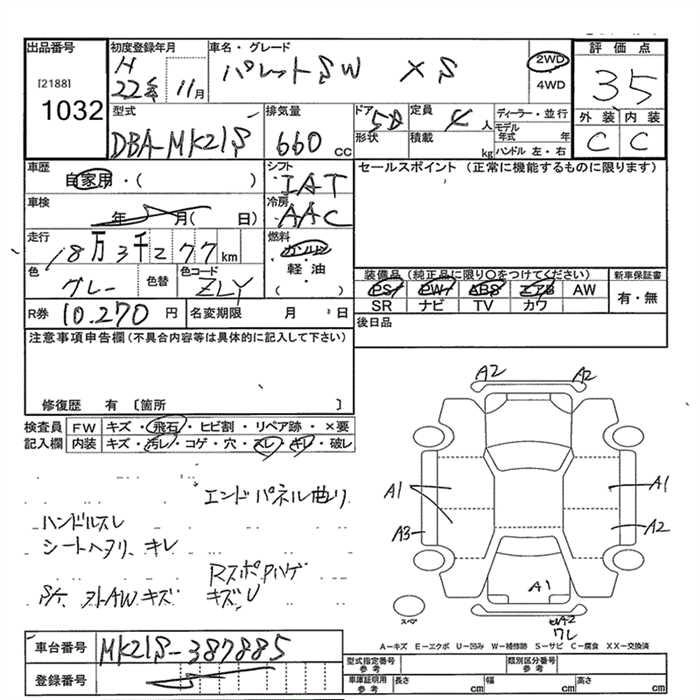 出品番号 初度登録年月 車名・グレード 評価点
[2188] 1032
H 22年 11月 パレットSW XS 2WD ・ 4WD 35
型式 排気量 ドア形状 定員 積載 ディーラー・並行 外装 内装
DBA-MK21S 660 cc 5D 4人 kg モデル年式 年 ハンドル 左・右 C C
車歴 シフト セールスポイント (正常に機能するものに限ります)
自家用・( ) IAT
車検 冷房
年 月( 日) AAC
走行 燃料
18万3千277km ガソリン・軽油 ( )
色 色替 色コード 装備品(純正品に限り○をつけてください) 新車保証書
グレー ZLY PS PW ABS エアB AW 有・無
SR ナビ TV カワ
R券 10.270円 名変期限 月 日 後日品
注意事項申告欄(不具合内容等は具体的に記入して下さい)
修復歴 有 〔箇所 〕
検査員 FW キズ・飛石・ヒビ割・リペア跡・×要
記入欄 内装 キズ・汚レ・コゲ・穴・スレ・キレ・破レ
エンドパネル曲り
ハンドルスレ
シートヘタリ、キレ
Rスポハゲ
外AWキズ キズU
A2 A2
A1 A1
A3 A2
A1
A2
ワレ
スペア
A-キズ E-エクボ U-凹み W-補修跡 S-サビ C-腐食 XX-交換済
車台番号 MK21S-387885
登録番号
型式指定番号 参考 類別区分番号 参考
車庫証明用 参考 長さ cm 幅 cm 高さ cm